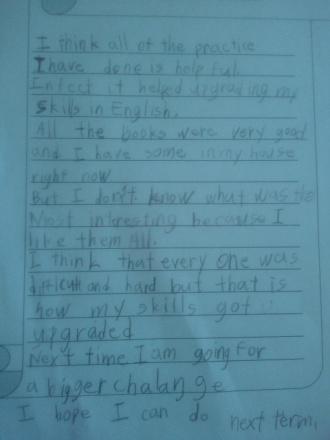 I think all of the practice
I have done is help ful.
Infect it helped upgrading my
skills in English.
All the books were very good
and I have some in my house
right now
But I don't know what was the
Most interesting because I
like them All.
I think that every one was
difficult and hard but that is
how my skills got
upgraded
Next time I am going for
a bigger chalange
I hope I can do next term,